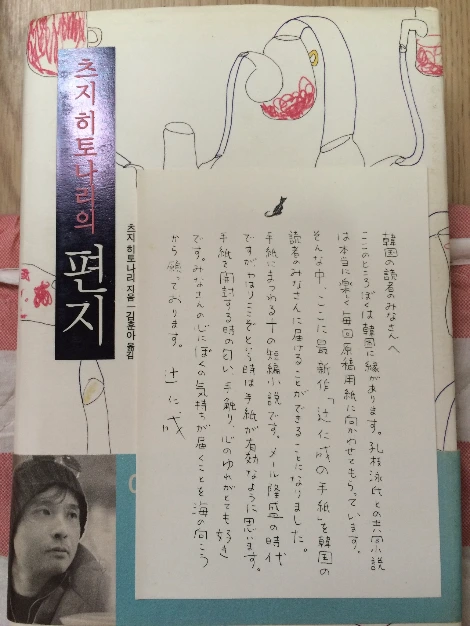 츠지 히토나리의
편지
츠지 히토나리 지음 | 김훈아 옮김
韓国の読者のみなさんへ
ここのところぼくは韓国に縁があります。孔枝泳氏との共同小説
は本当に楽しく毎回原稿用紙に向かわせてもらっています。
そんな中、ここに最新作「辻仁成の手紙」を韓国の
読者のみなさんに届けることができることになりました。
手紙にまつわる十の短編小説です。メール隆盛の時代
ですが、やはりここぞという時は手紙が有効なように思います。
手紙を開封する時の匂い、手触り、心のゆれがとても好き
です。みなさんの心にぼくの気持ちが届くことを海の向こう
から願っております。
辻仁成